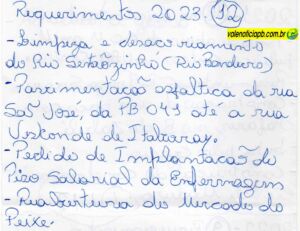 Requerimentos 2023. (12)
valenoticiapb.com.br
- Limpeza e desassoriamento
do Rio Sertãozinho (Rio Bandeiro)
- Pavimentação asfaltica da rua
São José, da PB 041 até a rua
Visconde de Itaboray.
- Pedido de Implantação do
Piso Salarial da Enfermagem
- Reabertura do Mercado do
Peixe.